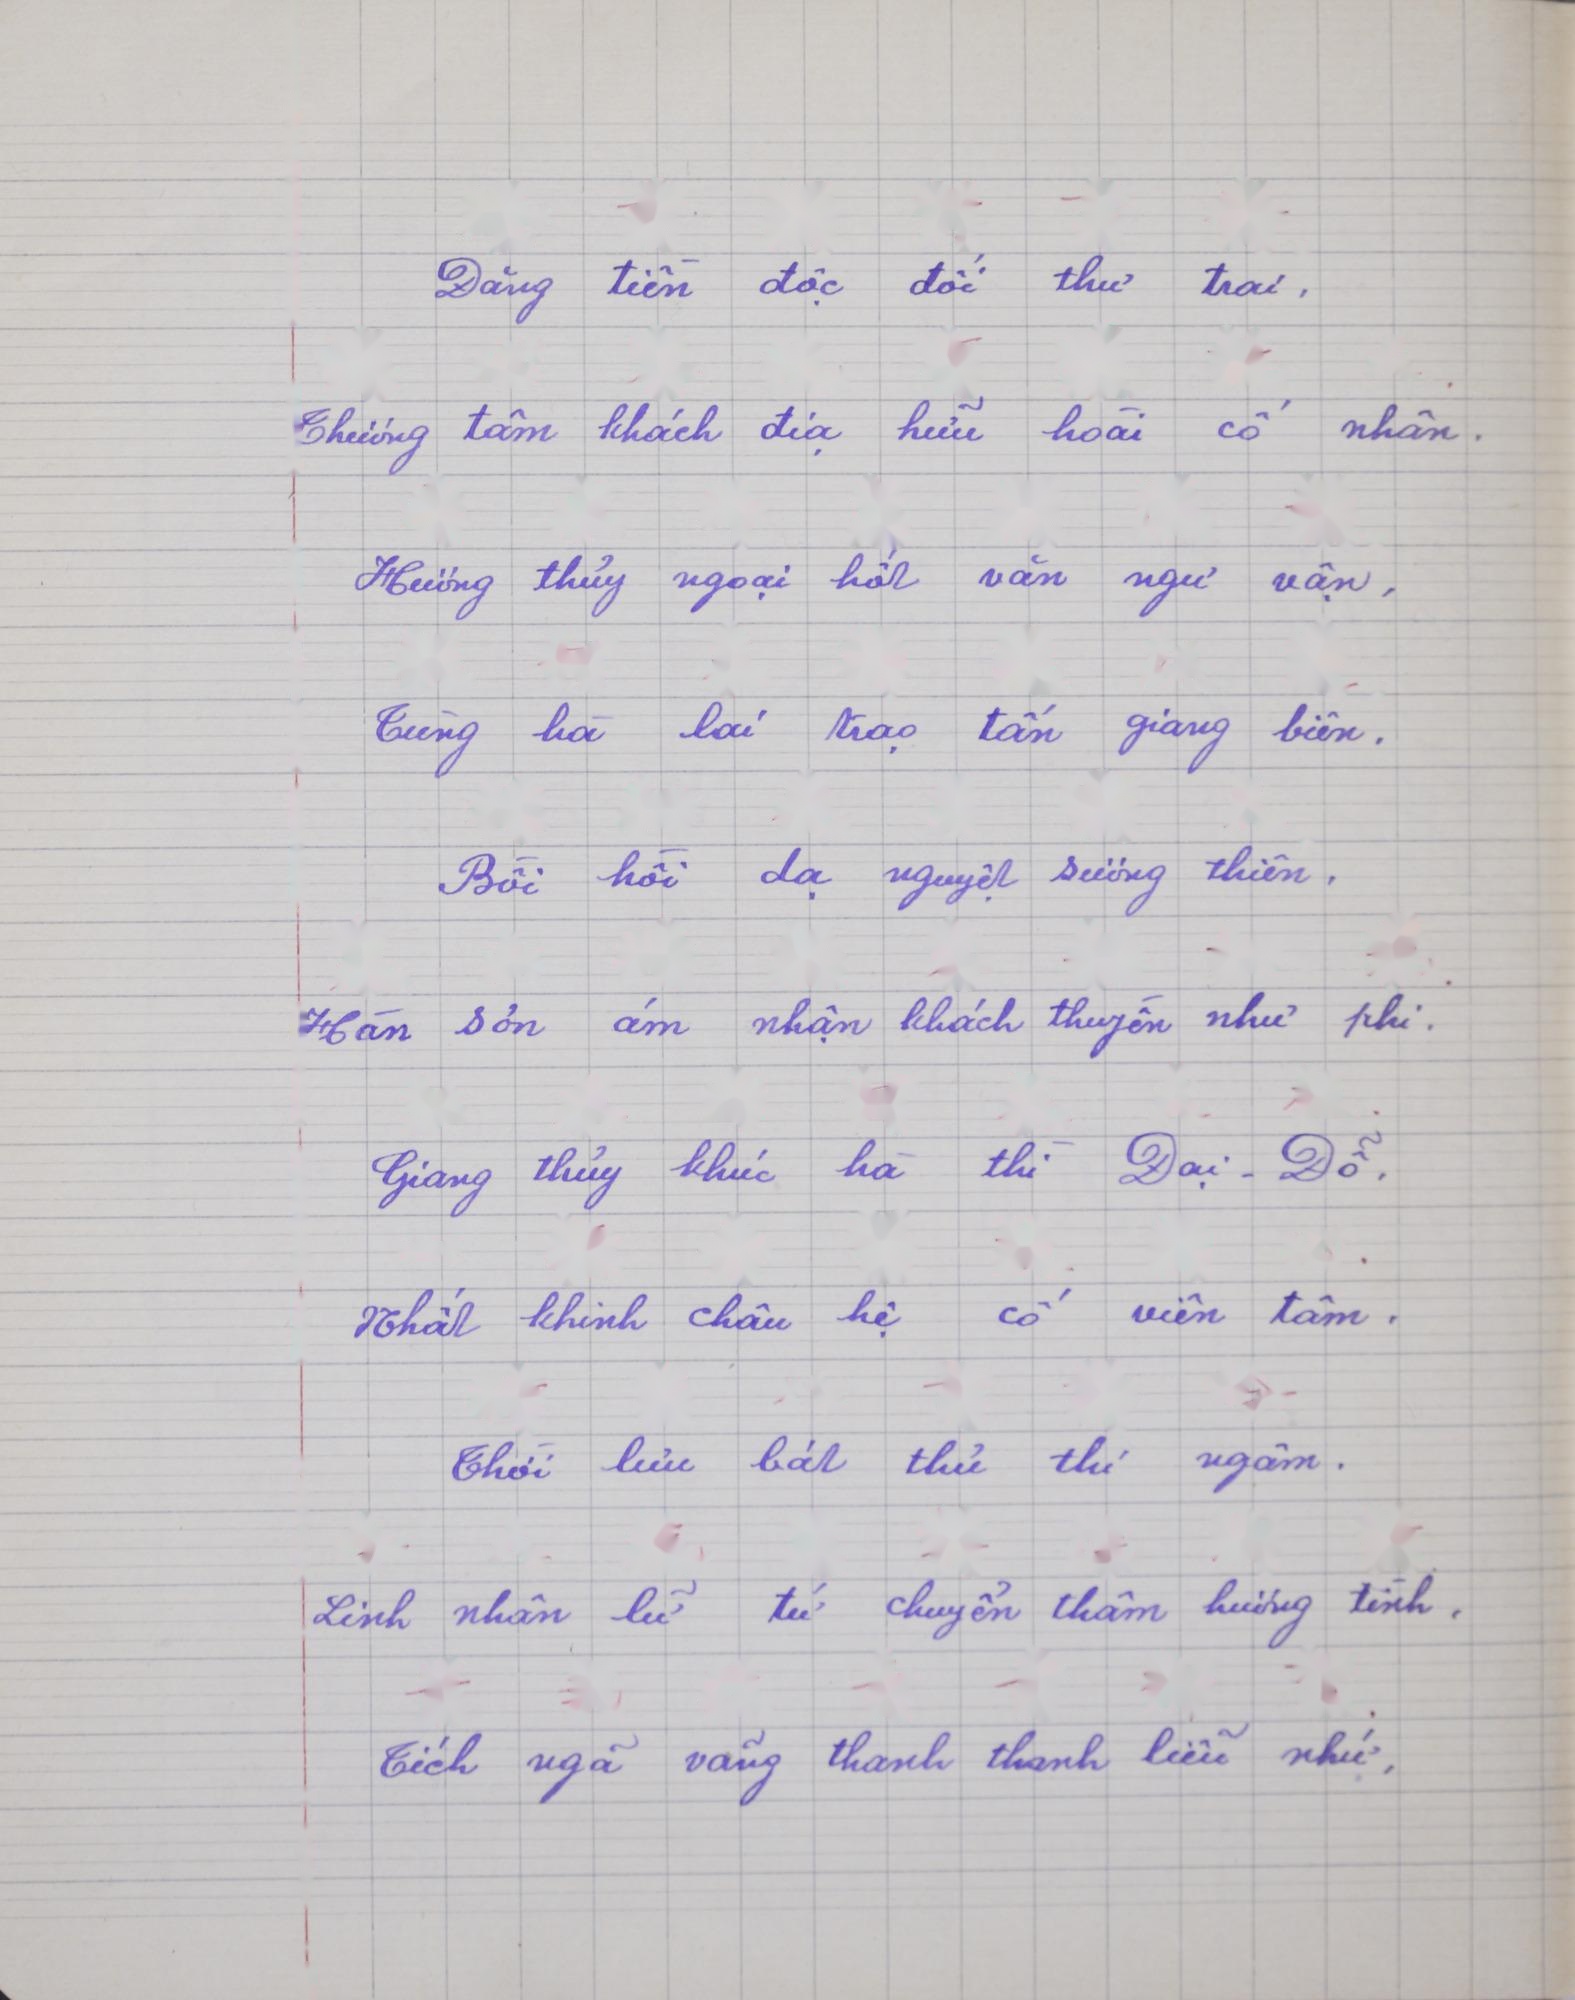 Đăng tiền độc đối thư trai,
Thương tâm khách địa hữu hoài cố nhân.
Hương thủy ngoại hốt văn ngư vận,
Tùng hà lai trạo tấn giang biên.
Bồi hồi dạ nguyệt sương thiên,
Hàn sơn ám nhận khách thuyền như phi.
Giang thủy khúc hà thì Đại - Đỗ,
Nhất khinh châu hệ cố viên tâm.
Thời lưu bát thủ thi ngâm.
Linh nhân lữ tứ chuyển thâm hương tình,
Tích ngã vãng thanh thanh liễu nhứ,